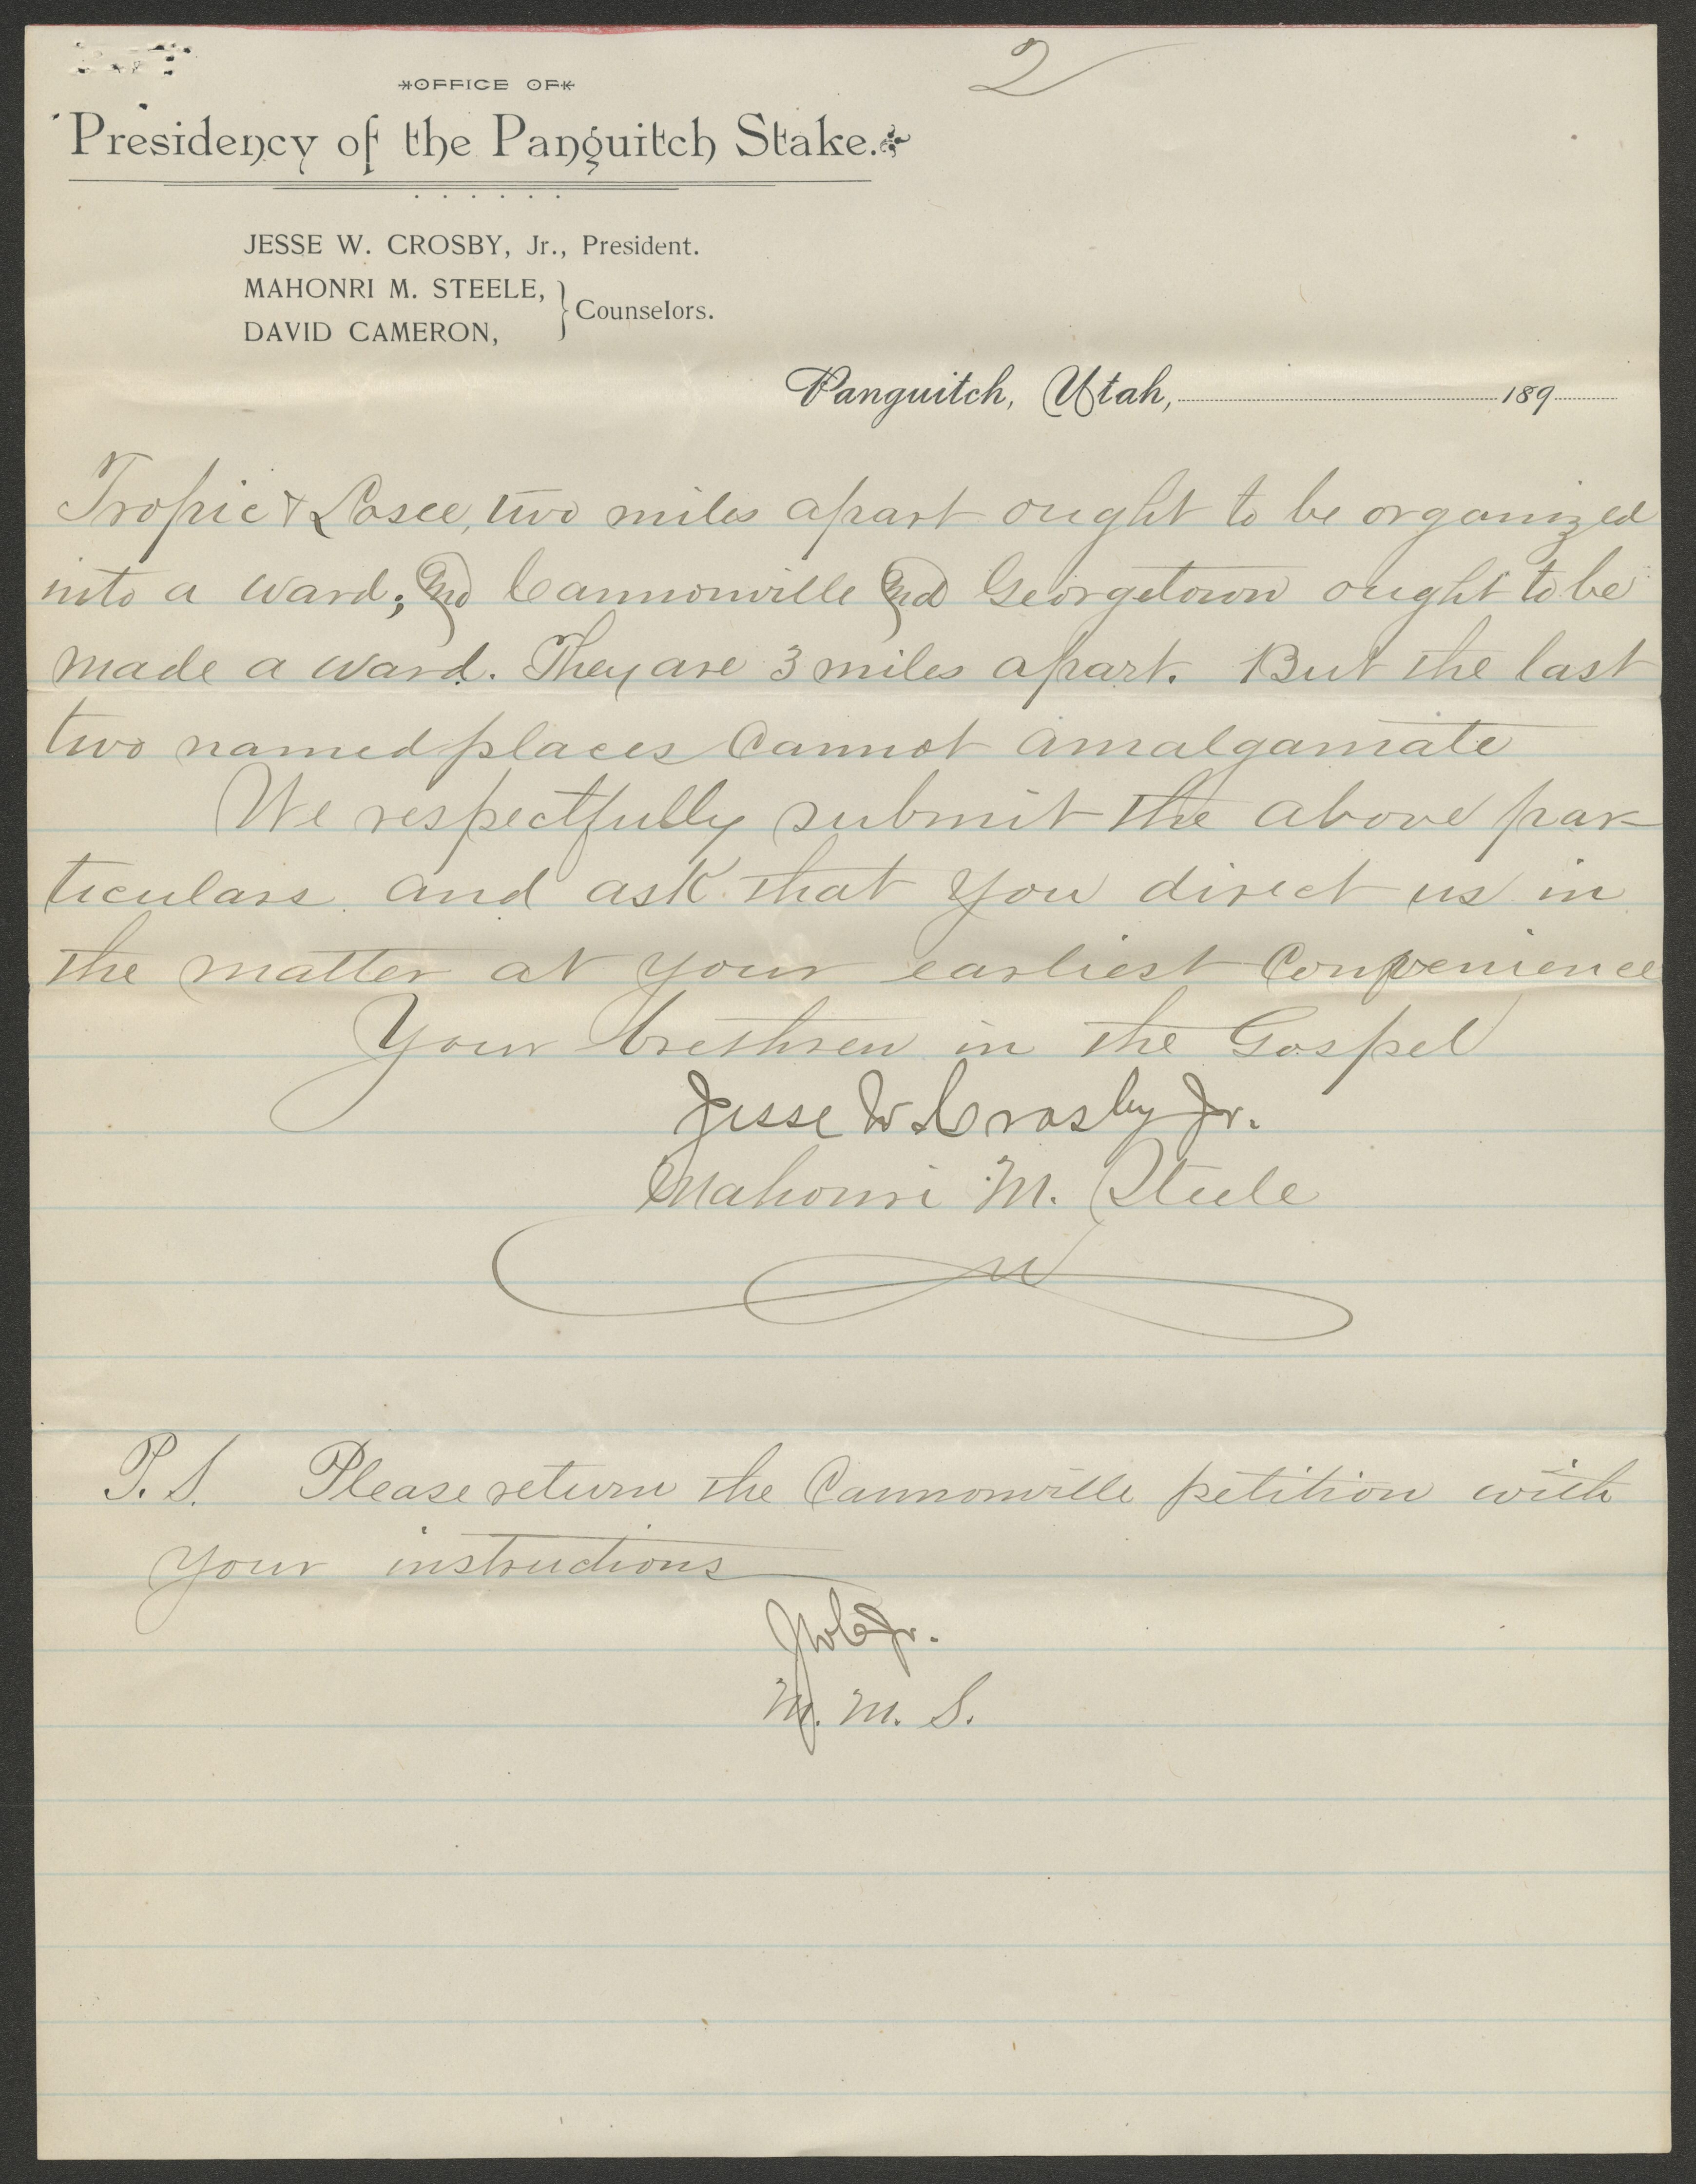 2
OFFICE OF
Presidency of the Panguitch Stake.
JESSE W. CROSBY, Jr., President.
MAHONRI M. STEELE,
DAVID CAMERON,
} Counselors.
Panguitch, Utah, 189
Tropic & Losee, two miles apart ought to be organized
into a ward; and Cannonville and Georgetown ought to be
made a ward. They are 3 miles apart. But the last
two named places cannot amalgamate
We respectfully submit the above par-
ticulars and ask that you direct us in
the matter at your earliest convenience
Your brethren in the Gospel
Jesse W. Crosby Jr.
Mahonri M. Steele
P.S. Please return the Cannonville petition with
your instructions
JWC Jr.
M. M. S.